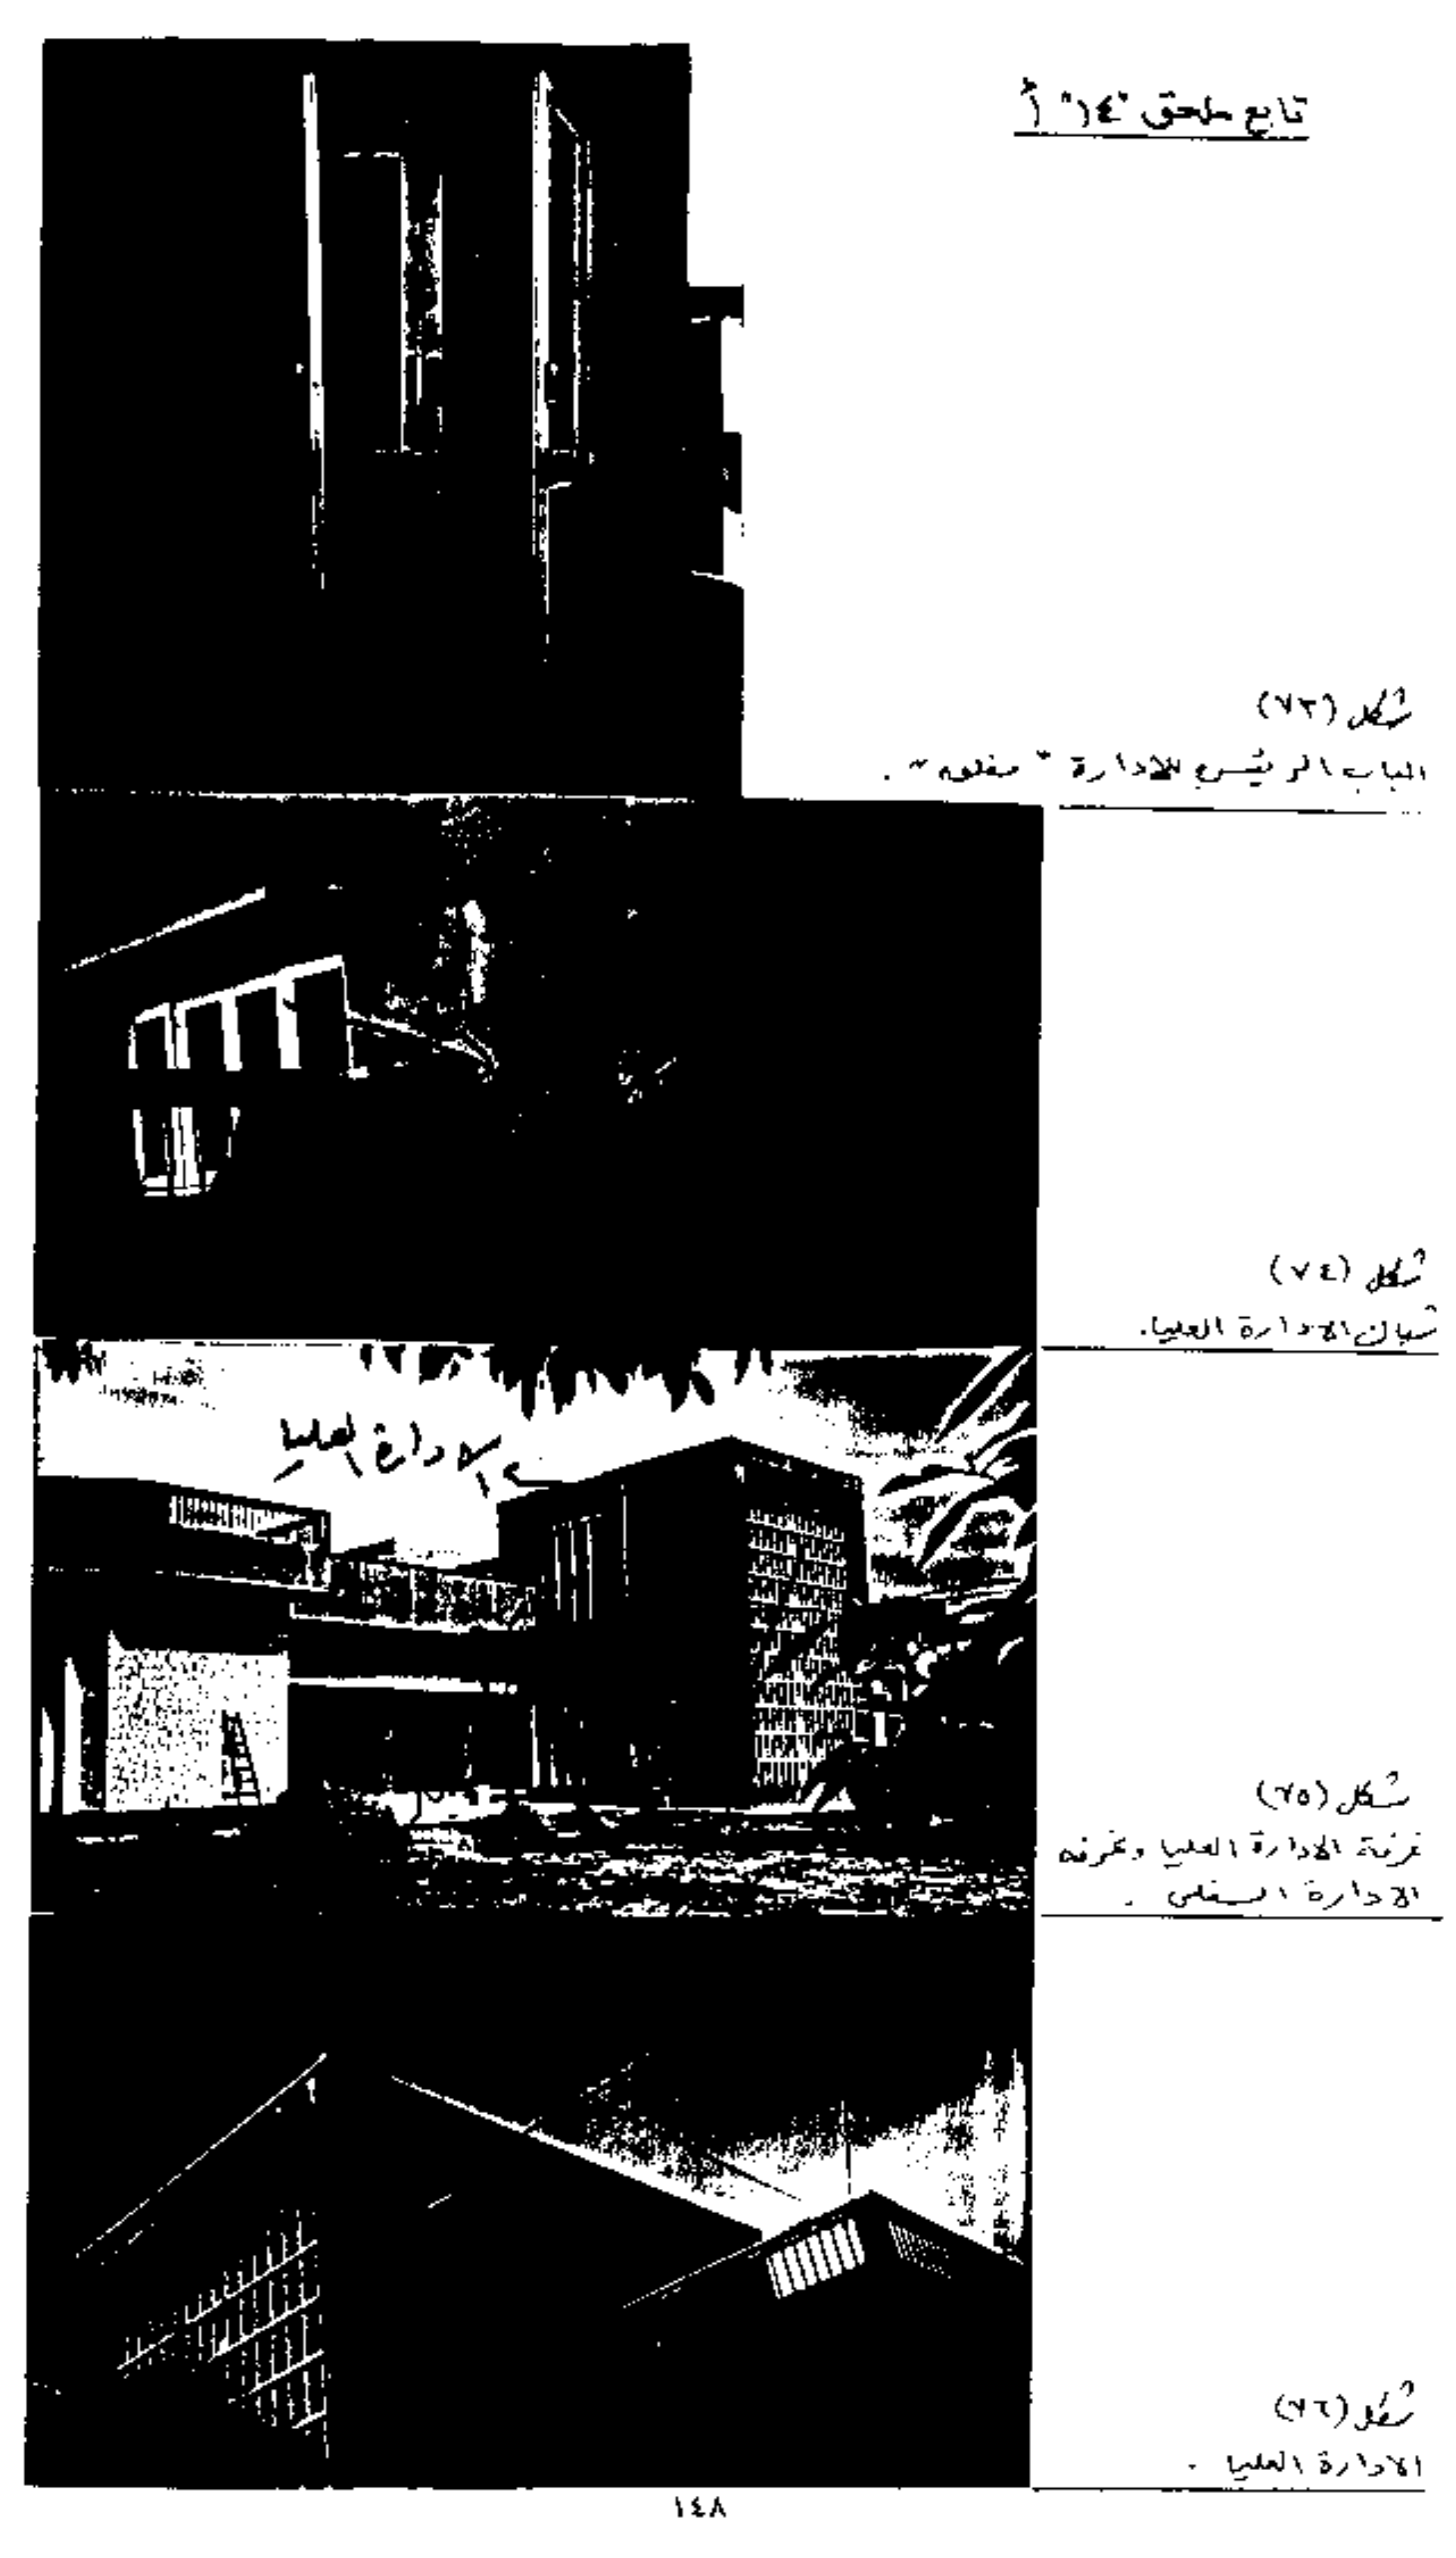 تابع ملحق "١٤" أ
شكل (٧٣)
الباب الرئيسي للادارة " مغلق " .
شكل (٧٤)
شباك الادارة العليا .
الادارة العليا
شكل (٧٥)
غرفة الادارة العليا وغرفة
الادارة السفلى .
شكل (٧٦)
الادارة العليا .
١٤٨